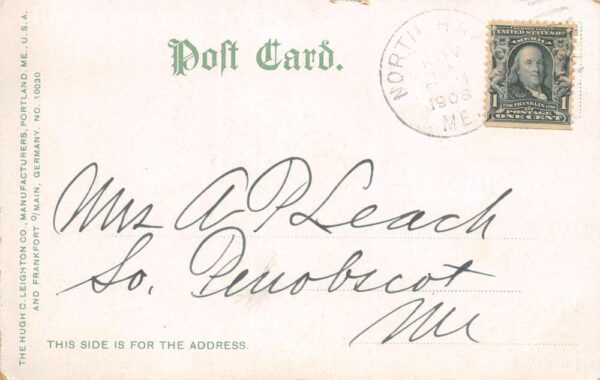 Post Card.
THE HUGH C. LEIGHTON CO., MANUFACTURERS, PORTLAND, ME., U.S.A.
AND FRANKFORT O/MAIN, GERMANY. NO. 10030
NORTH
NOV
1906
ME.
UNITED STATES OF
AMERICA
1 FRANKLIN 1
POSTAGE
ONE CENT
Mrs A P Leach
So. Penobscot
Me
THIS SIDE IS FOR THE ADDRESS.